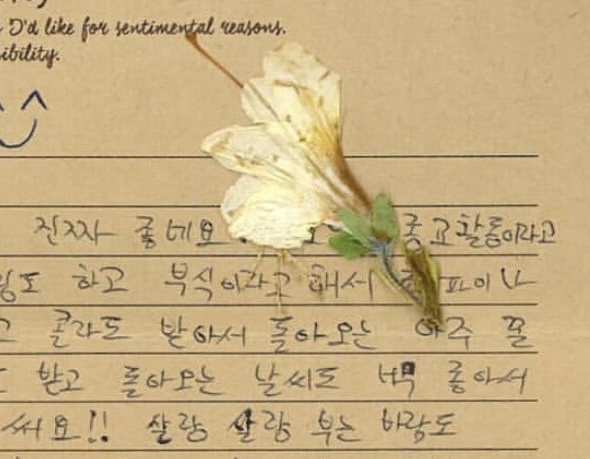 I'd like for sentimental reasons.
sibility.
진짜 좋네요. 종교활동이라고
도 하고 부식이라고 해서 초코파이나
콜라도 받아서 돌아오는 아주 꿀
받고 돌아오는 날씨도 너무 좋아서
써요!! 살랑 살랑 부는 바람도